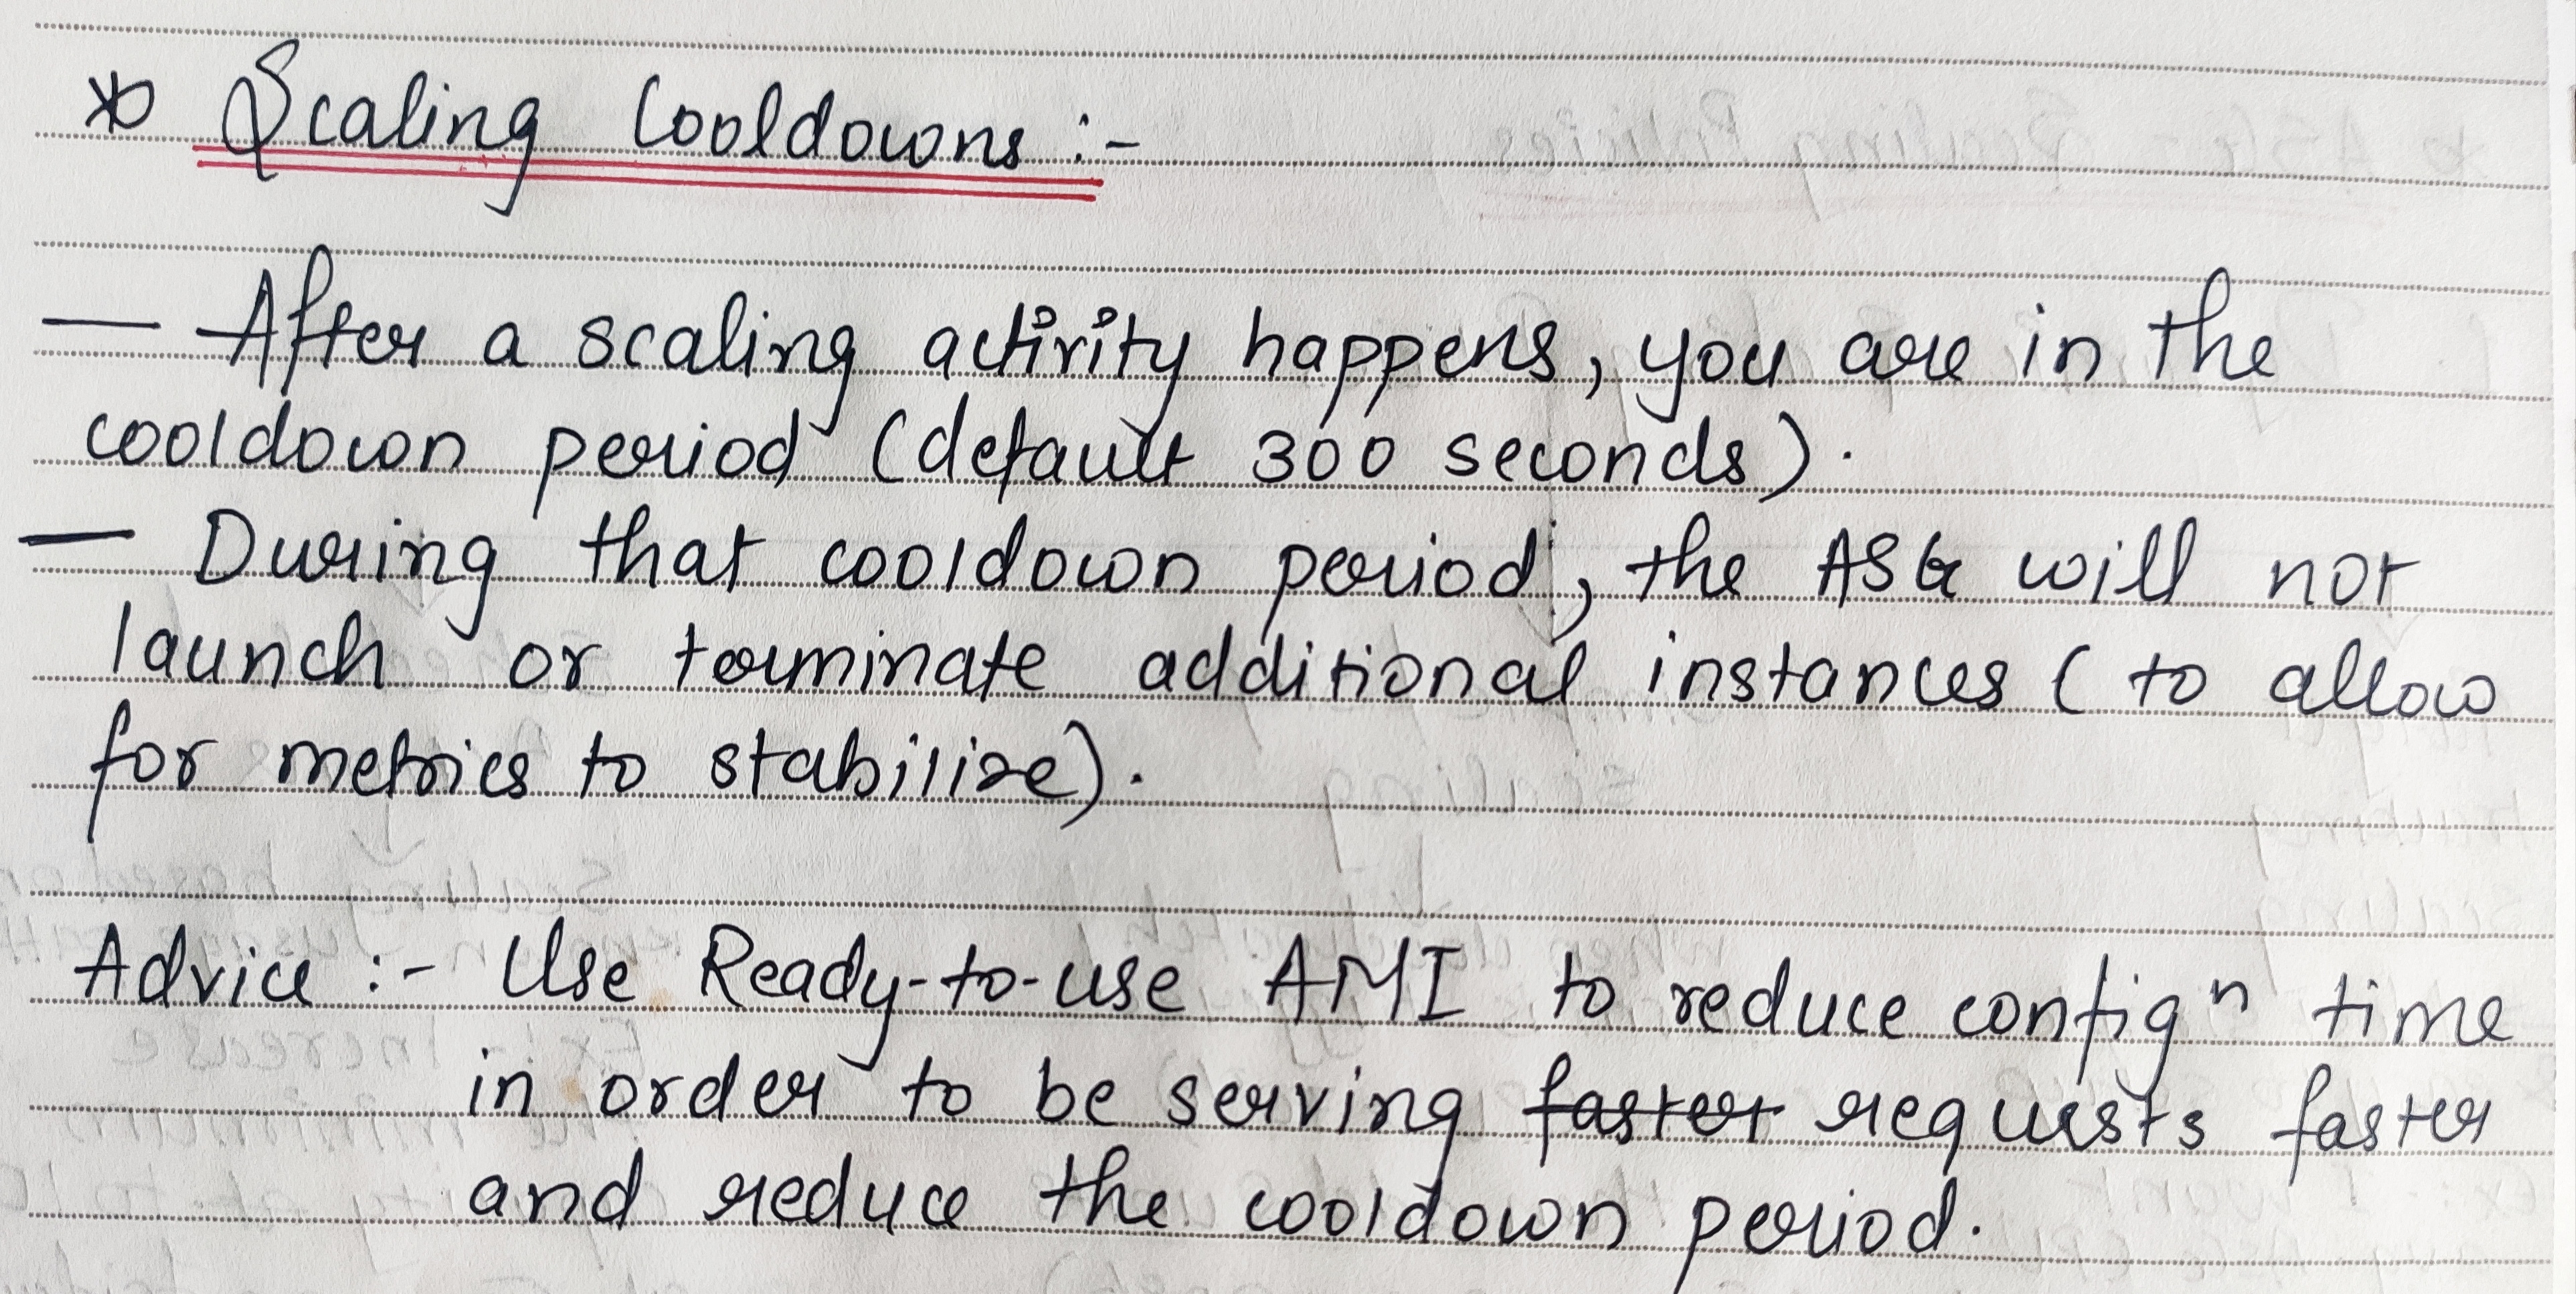 * Scaling Cooldowns :-
— After a scaling activity happens, you are in the
cooldown period (default 300 seconds).
— During that cooldown period, the ASG will not
launch or terminate additional instances (to allow
for metrics to stabilize).
Advice :- Use Ready-to-use AMI to reduce configⁿ time
in order to be serving faster requests faster
and reduce the cooldown period.